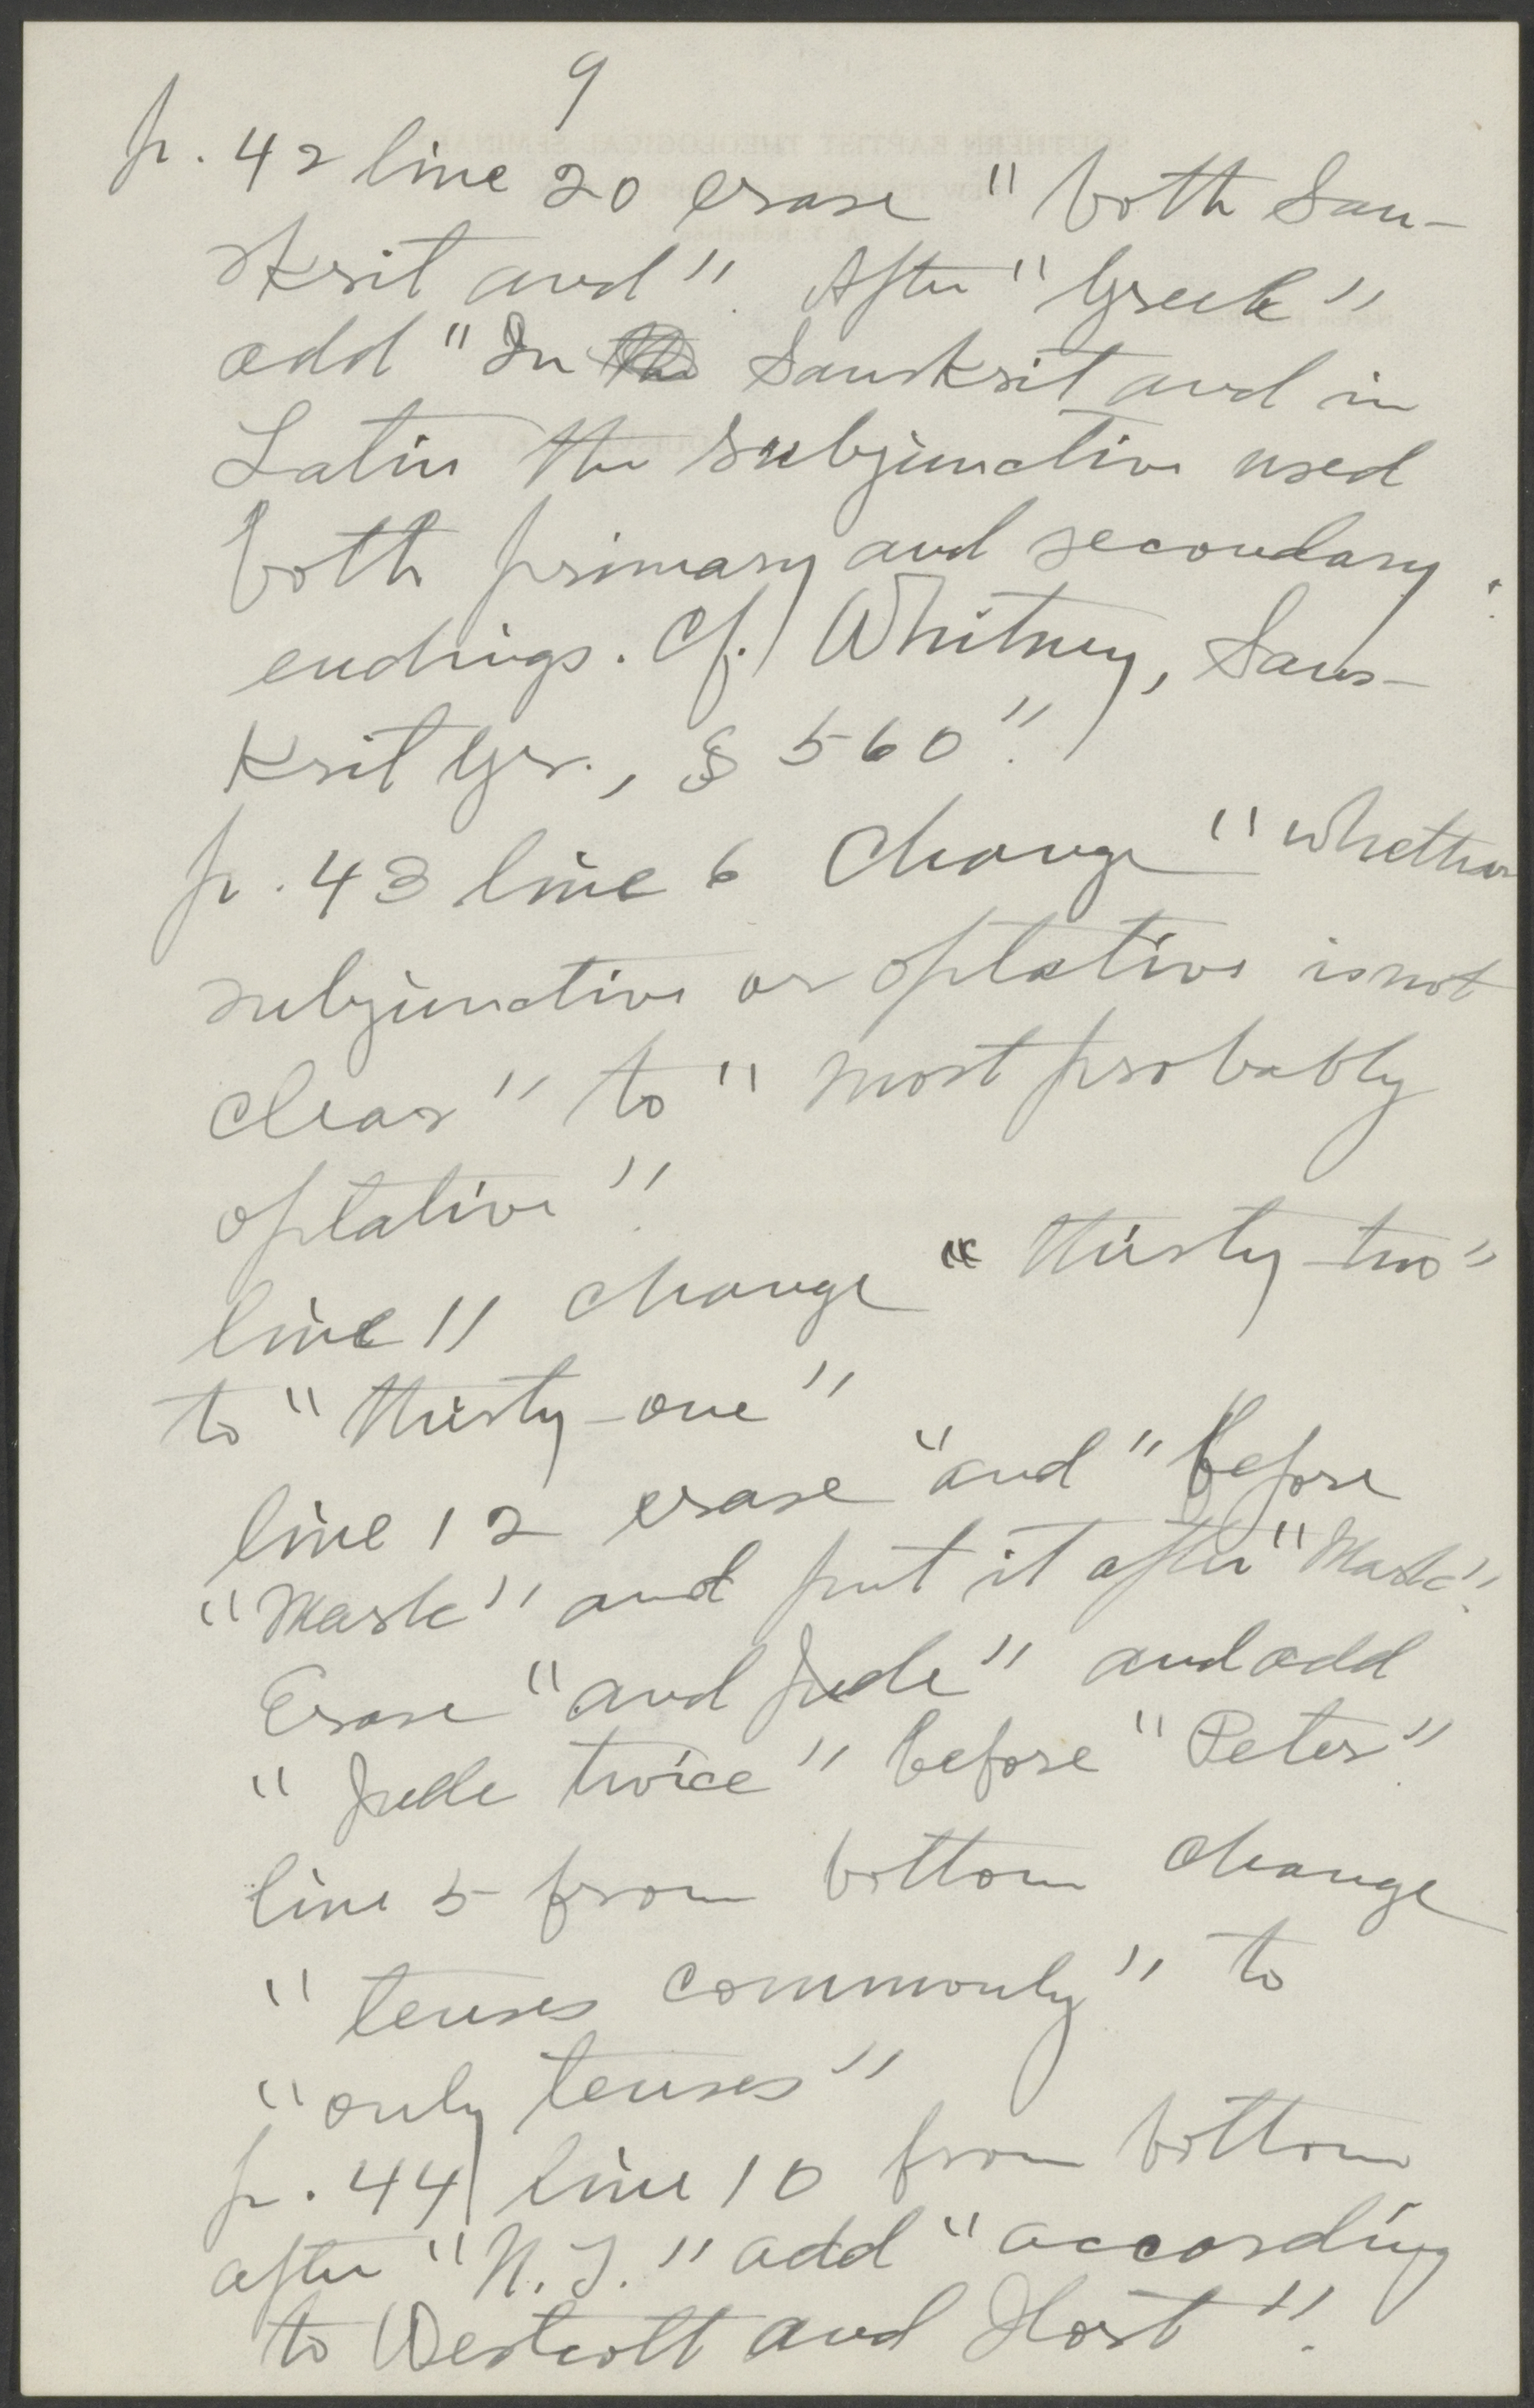 9
p. 42 line 20 erase "both San-
skrit and". After "Greek"
add "In Sanskrit and in
Latin the subjunctive used
both primary and secondary
endings. Cf. Whitney, Sans-
krit Gr., § 560".
p. 43 line 6 change "whether
subjunctive or optative is not
clear" to "most probably
optative".
line 11 change "thirty-two"
to "thirty-one"
line 12 erase "and" before
"Mark" and put it after "Mark".
Erase "and Jude" and add
"Jude twice" before "Peter".
line 5 from bottom change
"tenses commonly" to
"only tenses"
p. 44 line 10 from bottom
after "N. T." add "according
to Westcott and Hort".